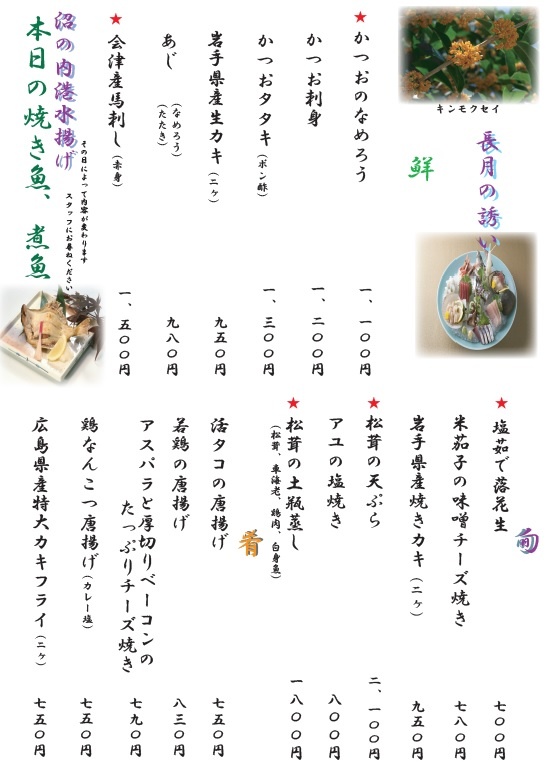 キンモクセイ
長月の誘い
鮮
★かつおのなめろう 一、一〇〇円
かつお刺身 一、二〇〇円
かつおタタキ(ポン酢) 一、三〇〇円
岩手県産生カキ(二ヶ) 九五〇円
あじ(なめろう)(たたき) 九八〇円
★会津産馬刺し(赤身) 一、五〇〇円
沼の内港水揚げ
本日の焼き魚、煮魚
その日によって内容が変わります
スタッフにお尋ねください
旬
★塩茹で落花生 七〇〇円
米茄子の味噌チーズ焼き 七八〇円
岩手県産焼きカキ(二ヶ) 九五〇円
★松茸の天ぷら 二、一〇〇円
アユの塩焼き 八〇〇円
★松茸の土瓶蒸し 一八〇〇円
(松茸、車海老、鶏肉、白身魚)
肴
活タコの唐揚げ 七五〇円
若鶏の唐揚げ 八三〇円
アスパラと厚切りベーコンの
たっぷりチーズ焼き 七九〇円
鶏なんこつ唐揚げ(カレー塩) 七五〇円
広島県産特大カキフライ(二ヶ) 七五〇円